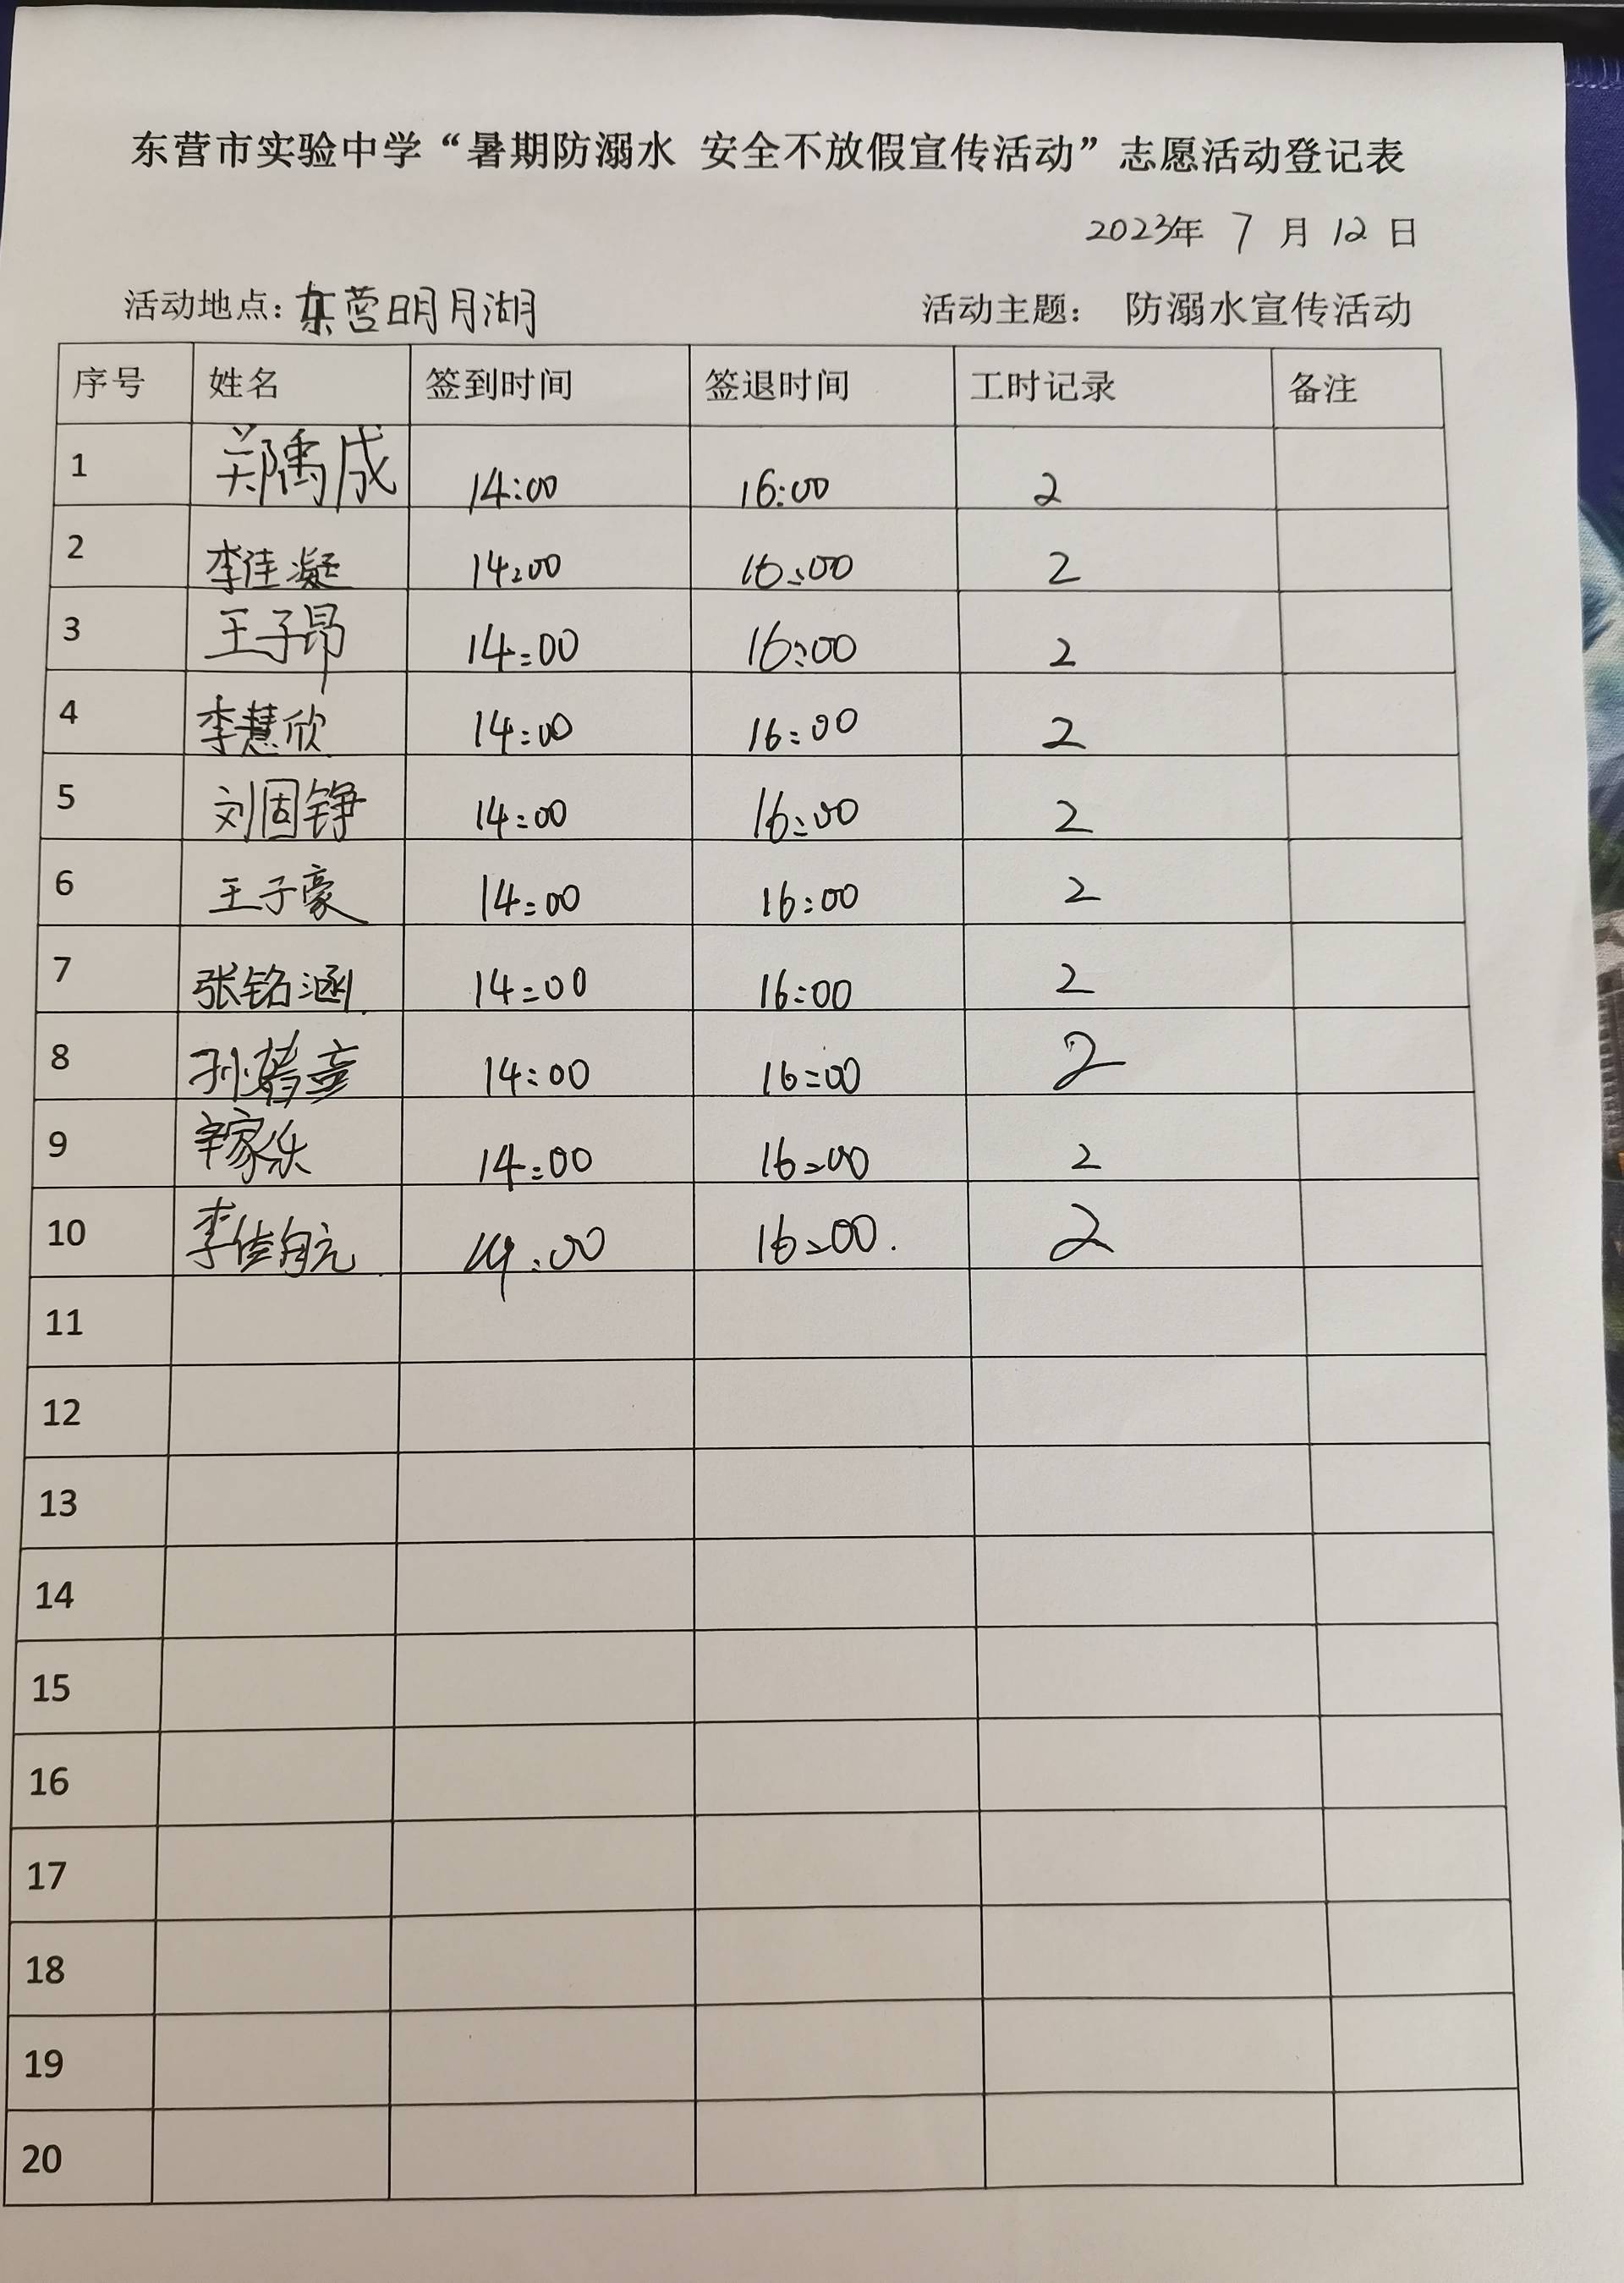 东营市实验中学“暑期防溺水 安全不放假宣传活动”志愿活动登记表
2023年 7 月 12 日
活动地点：东营明月湖 活动主题： 防溺水宣传活动
序号 姓名 签到时间 签退时间 工时记录 备注
1 郑禹成 14:00 16:00 2
2 李佳凝 14:00 16:00 2
3 王子昂 14:00 16:00 2
4 李慧欣 14:00 16:00 2
5 刘固铮 14:00 16:00 2
6 王子豪 14:00 16:00 2
7 张铭涵 14:00 16:00 2
8 孙 14:00 16:00 2
9 辛家乐 14:00 16:00 2
10 李佳航 14:00 16:00. 2
11
12
13
14
15
16
17
18
19
20